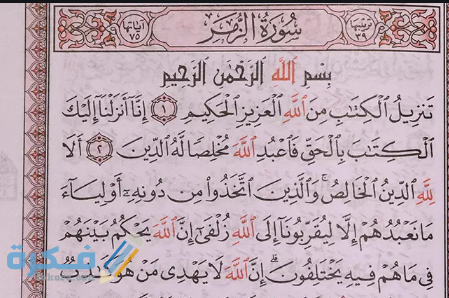 ترتيبها ٣٩ سُورَةُ الزُّمَرِ آياتها ٧٥
بِسْمِ ٱللَّهِ ٱلرَّحْمَٰنِ ٱلرَّحِيمِ
تَنزِيلُ ٱلْكِتَٰبِ مِنَ ٱللَّهِ ٱلْعَزِيزِ ٱلْحَكِيمِ ١ إِنَّآ أَنزَلْنَآ إِلَيْكَ
ٱلْكِتَٰبَ بِٱلْحَقِّ فَٱعْبُدِ ٱللَّهَ مُخْلِصًا لَّهُ ٱلدِّينَ ٢ أَلَا
لِلَّهِ ٱلدِّينُ ٱلْخَالِصُ ۚ وَٱلَّذِينَ ٱتَّخَذُوا۟ مِن دُونِهِۦٓ أَوْلِيَآءَ
مَا نَعْبُدُهُمْ إِلَّا لِيُقَرِّبُونَآ إِلَى ٱللَّهِ زُلْفَىٰٓ إِنَّ ٱللَّهَ يَحْكُمُ بَيْنَهُمْ
فِى مَا هُمْ فِيهِ يَخْتَلِفُونَ ۗ إِنَّ ٱللَّهَ لَا يَهْدِى مَنْ هُوَ كَٰذِبٌ
فكرة